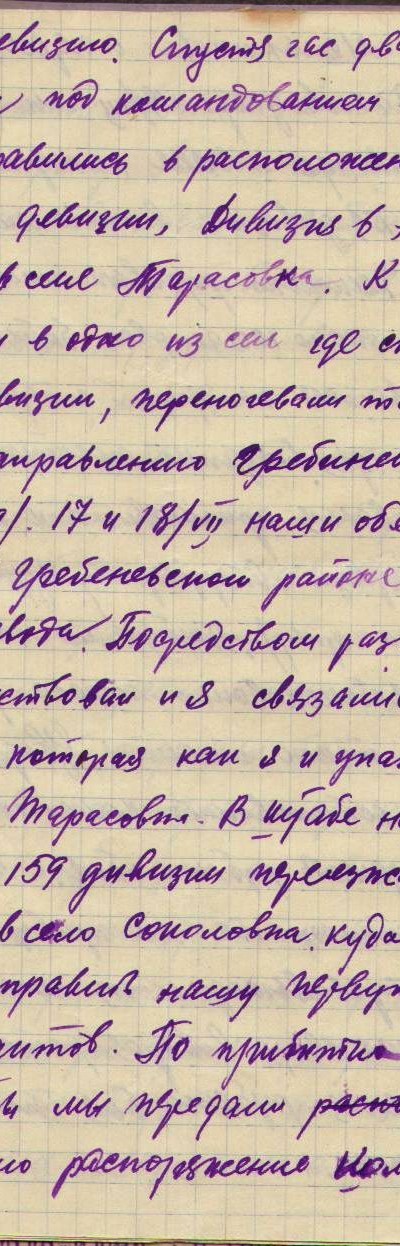 евизию. Спустя час два
под командованием
равились в расположен
девизии, Дивизия в
в селе Тарасовка. К
и в одно из сел где с
визии, переночевали
аправлению Гребинев
17 и 18/VII наши об
Гребеневском районе
вода. Посредством раз
ствовал и я связали
которая как я и упа
Тарасовки. В штабе н
159 дивизии переезж
в село Соколовка, куда
править нашу перву
антов. По прибытию
мы передали
ю распоряжение ком